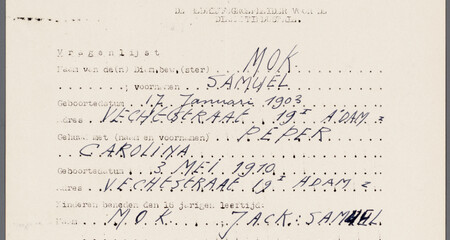 V r a g e n l i j s t
Naam van de(n) Diam.bew.(ster) MOK.
" ; voornamen SAMUEL
Geboortedatum . 17. Januari 1903.
Adres . VECHTSTRAAT . 19 I A.DAM. Z
Gehuwd met (naam en voornamen) PEPER
CAROLINA
Geboortedatum . 3. MEI. 1910.
Adres . VECHTSTRAAT 19 I ADAM. Z
Kinderen beneden den 18 jarigen leeftijd:
Naam MOK JACK: SAMUEL